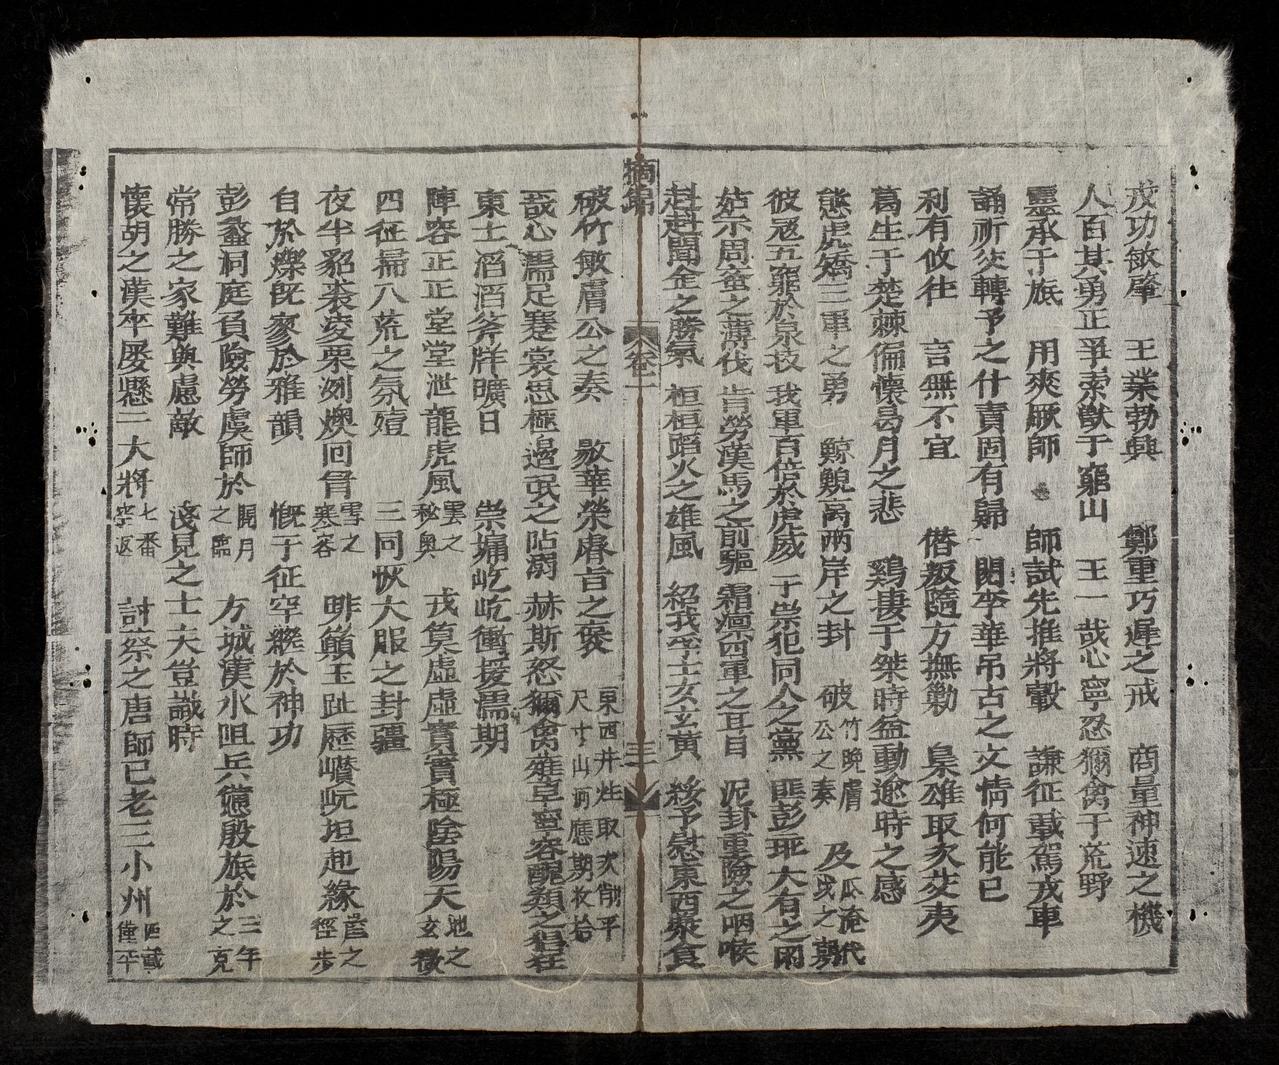 戎功敏肇　王業勃興　鄭重巧遲之戒　商量神速之機
人百其勇正爭索獸于窮山　王一哉心寧忍獮禽于荒野
靈承于旅　用爽厥師　師試先推將轂　謙征載駕戎車
誦祈父轉予之什責固有歸　閱李華吊古之文情何能已
利有攸往　言無不宜　僭叛隨方撫勦　梟雄取次芟夷
葛生于楚棘偏懷曷月之悲　鷄棲于桀時益動逾時之感
態虎矯三軍之勇　鯨鯢兩岸之封　破竹晚膚公之奏　及瓜淹代戍之期
彼寇五窮於泉技　我軍百倍於虎威　于崇犯同人之黨　匪彭取大有之
姑示周蠻之薄伐　肯勞漢馬之前驅　霜凜四軍之耳目　泥卦重險之咽喉
赳赳聞金之勝氣　桓桓蹈火之雄風　紹我卒士女玄黃　綏予慰東西衆食
摘錦　卷一　三
破竹敏膚公之奏　敭華榮睿旨之褒　東西井灶取次削平尺寸山河應期收拾
哉心濡足蹇裳思極邊氓之阽溺　赫斯怒獮禽薙草寧容醜類之猖狂
東士滔滔斧牂曠日　崇墉屹屹衝援濡期
陣容正正堂堂泄龍虎風雲之秘奧　戎筭虛虛實實極陰陽天地之玄徵
四征掃八荒之氛殪　三同恢大服之封疆
夜半貂裘凌栗冽燠回胷雪之寒容　畔巔玉趾歷巑岏坦也緣崖之徑步
自於爍旣褎於雅韻　慨于征罕繼於神功
彭蠡洞庭負險勞虞師於開月之臨　方城漢水咀兵憊殷旅於三年之克
常勝之家難與慮敵　淺見之士夫豈識時
懷胡之漢卒屡懸二大將七番空返　討祭之唐師已老三小州四載僅平